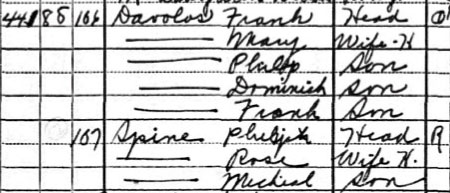 441 85 106 Davolos Frank Head O
Mary Wife-H
Philip Son
Dominick Son
Frank Son
107 Spine Philip Head R
Rose Wife H.
Micheal Son